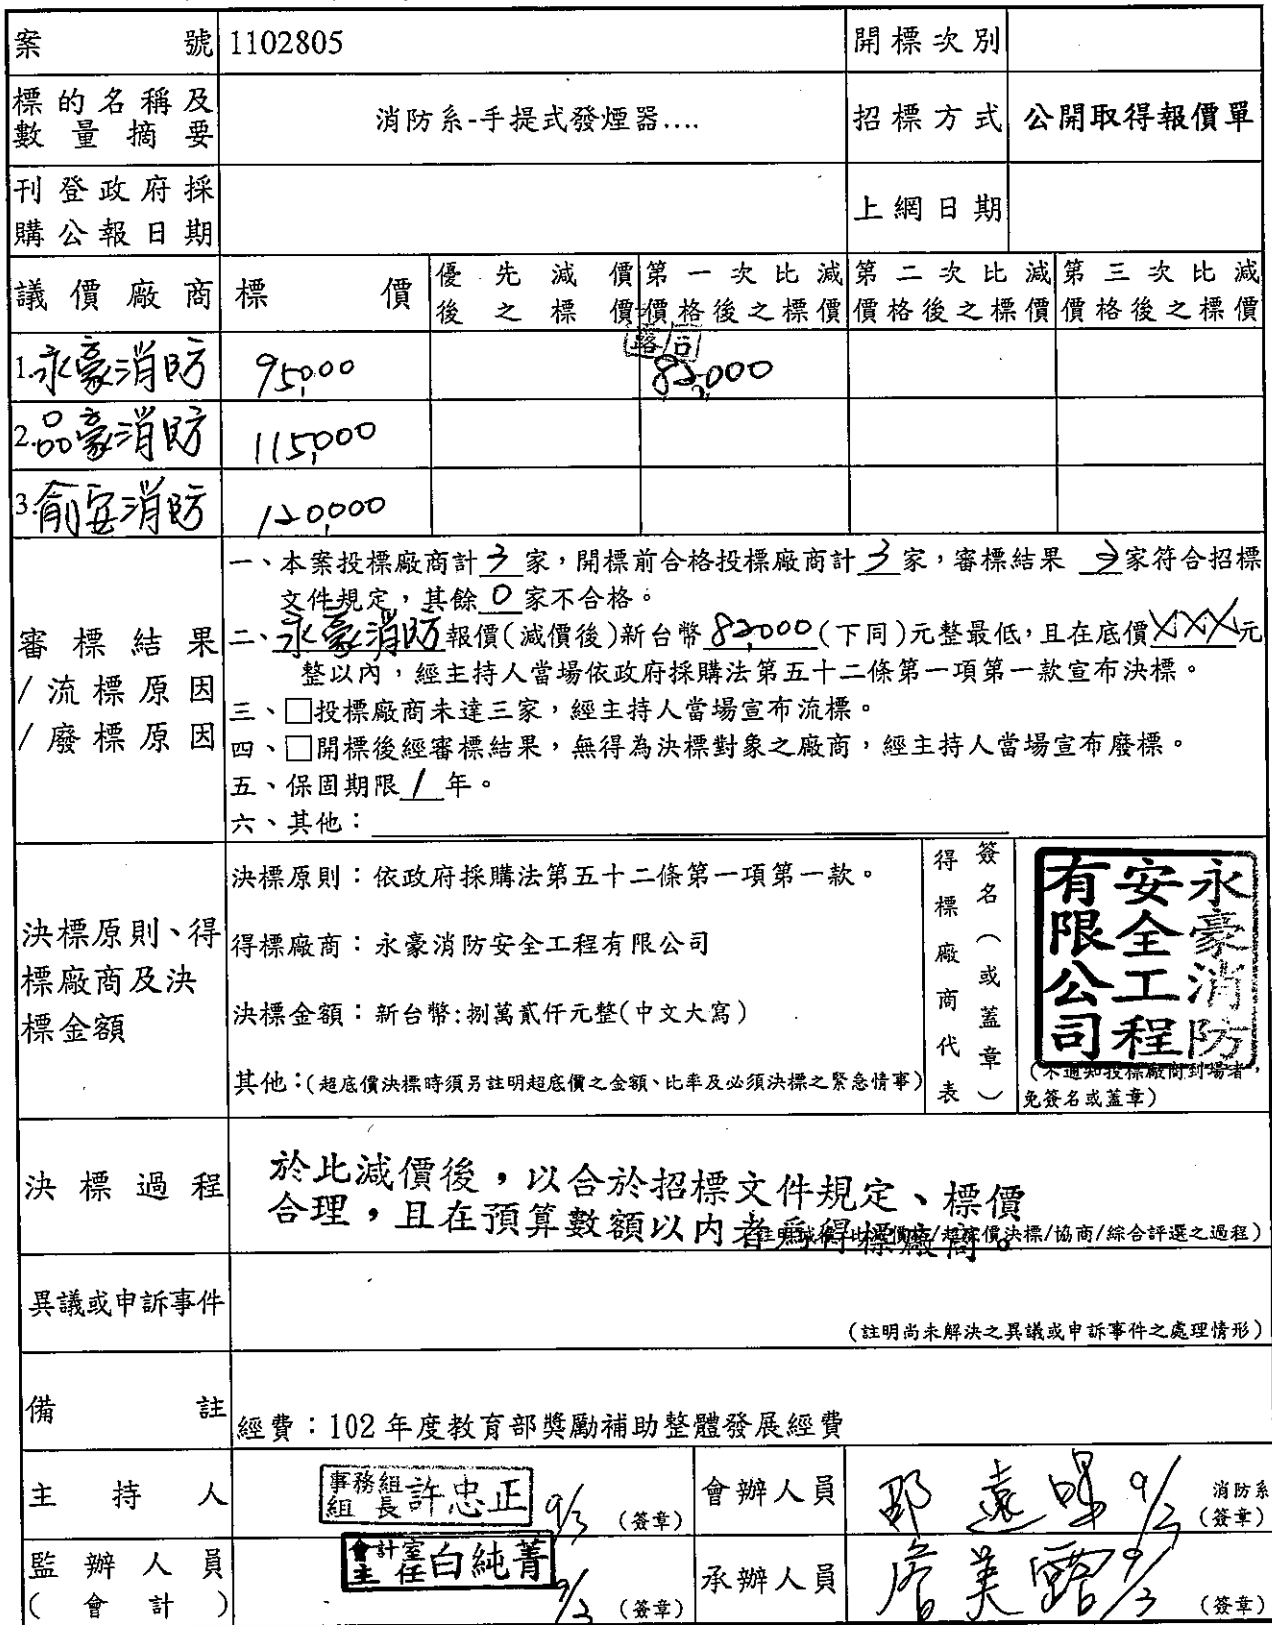 案 號 1102805 開標次別
標的名稱及數量摘要 消防系-手提式發煙器.... 招標方式 公開取得報價單
刊登政府採購公報日期 上網日期
議價廠商 標價 優先減價後之標價 第一次比減價格後之標價 第二次比減價格後之標價 第三次比減價格後之標價
1.永豪消防 95,000 82,000
2.品豪消防 115,000
3.俞安消防 120,000
審標結果/流標原因/廢標原因
一、本案投標廠商計 3 家，開標前合格投標廠商計 3 家，審標結果 3 家符合招標
文件規定，其餘 0 家不合格。
二、永豪消防報價(減價後)新台幣 82,000 (下同)元整最低，且在底價XXX元
整以內，經主持人當場依政府採購法第五十二條第一項第一款宣布決標。
三、□投標廠商未達三家，經主持人當場宣布流標。
四、□開標後經審標結果，無得為決標對象之廠商，經主持人當場宣布廢標。
五、保固期限 1 年。
六、其他：
決標原則、得標廠商及決標金額
決標原則：依政府採購法第五十二條第一項第一款。
得標廠商：永豪消防安全工程有限公司
決標金額：新台幣:捌萬貳仟元整(中文大寫)
其他：(超底價決標時須另註明超底價之金額、比率及必須決標之緊急情事)
得標廠商代表簽名（或蓋章）
永豪消防安全工程有限公司
(不通知投標廠商到場者，
免簽名或蓋章)
決標過程
於此減價後，以合於招標文件規定、標價
合理，且在預算數額以內者為得標廠商。
決標/協商/綜合評選之過程)
異議或申訴事件
(註明尚未解決之異議或申訴事件之處理情形)
備註 經費：102 年度教育部獎勵補助整體發展經費
主持人 事務組組長 許忠正 9/3 (簽章) 會辦人員 9/3 消防系(簽章)
監辦人員(會計) 會計室主任 白純菁 9/3 (簽章) 承辦人員 詹美露 9/3 (簽章)